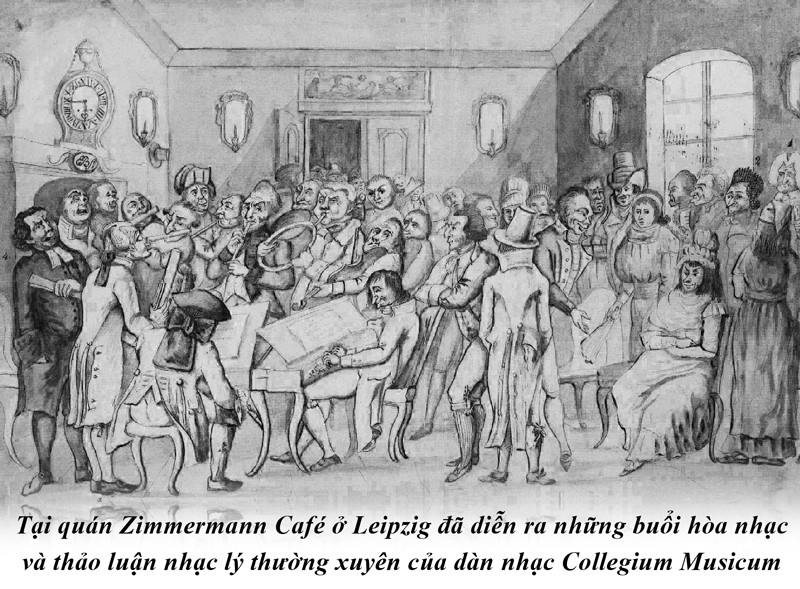 Tại quán Zimmermann Café ở Leipzig đã diễn ra những buổi hòa nhạc
và thảo luận nhạc lý thường xuyên của dàn nhạc Collegium Musicum